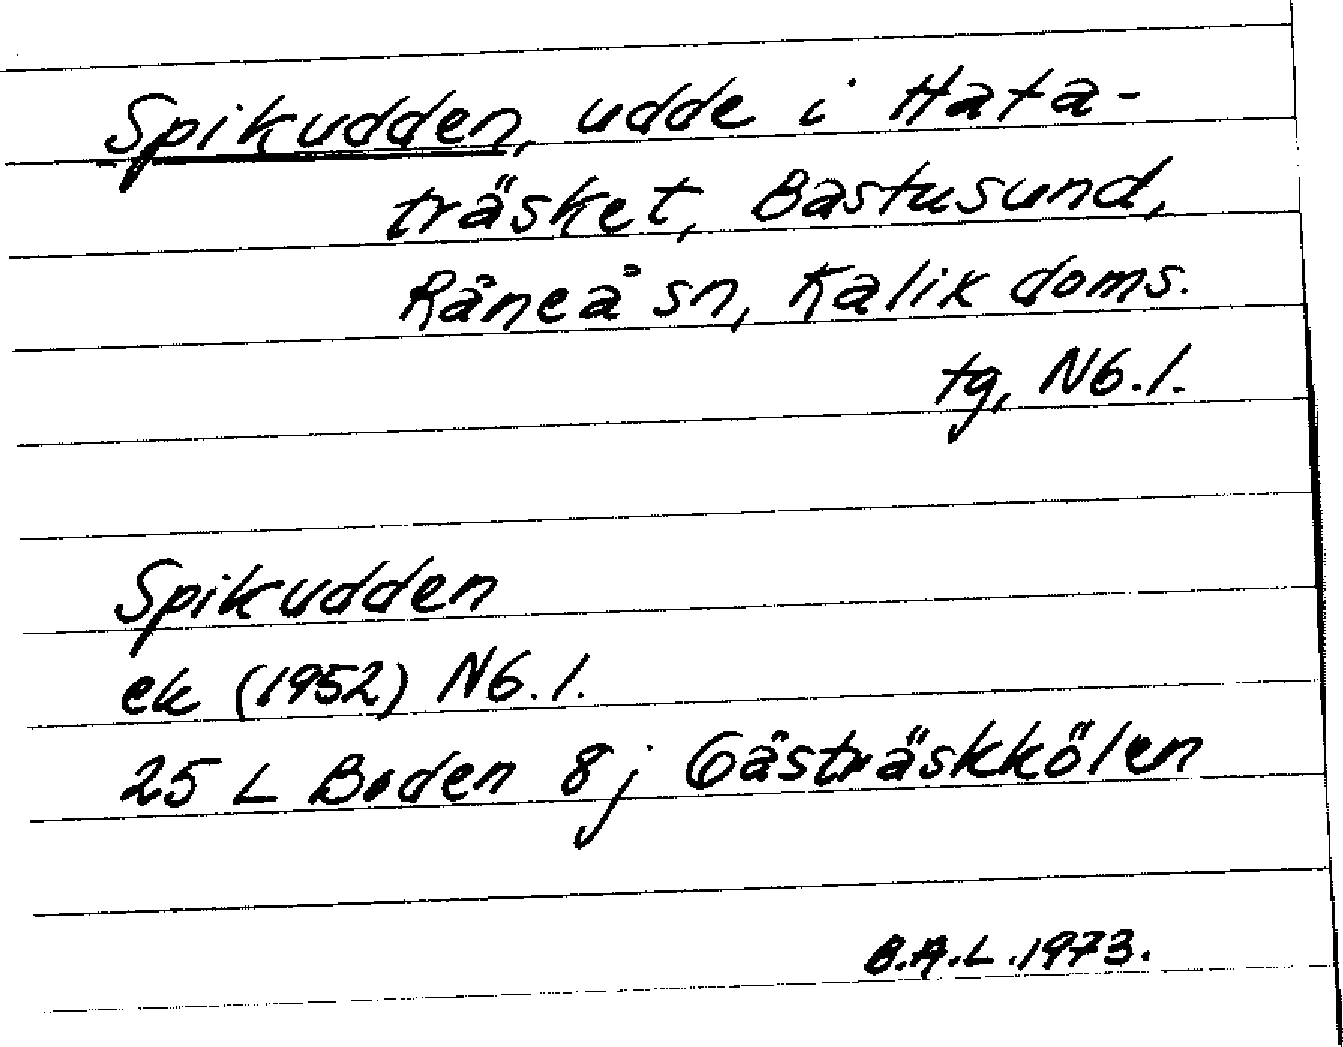 Spikudden, udde i Hata-
träsket, Bastusund,
Råneå sn, Kalix doms.
tg, Nb.l.
Spikudden
ek (1952) Nb.l.
25 L Boden 8 j Gästräskkölen
B.A.L. 1973.